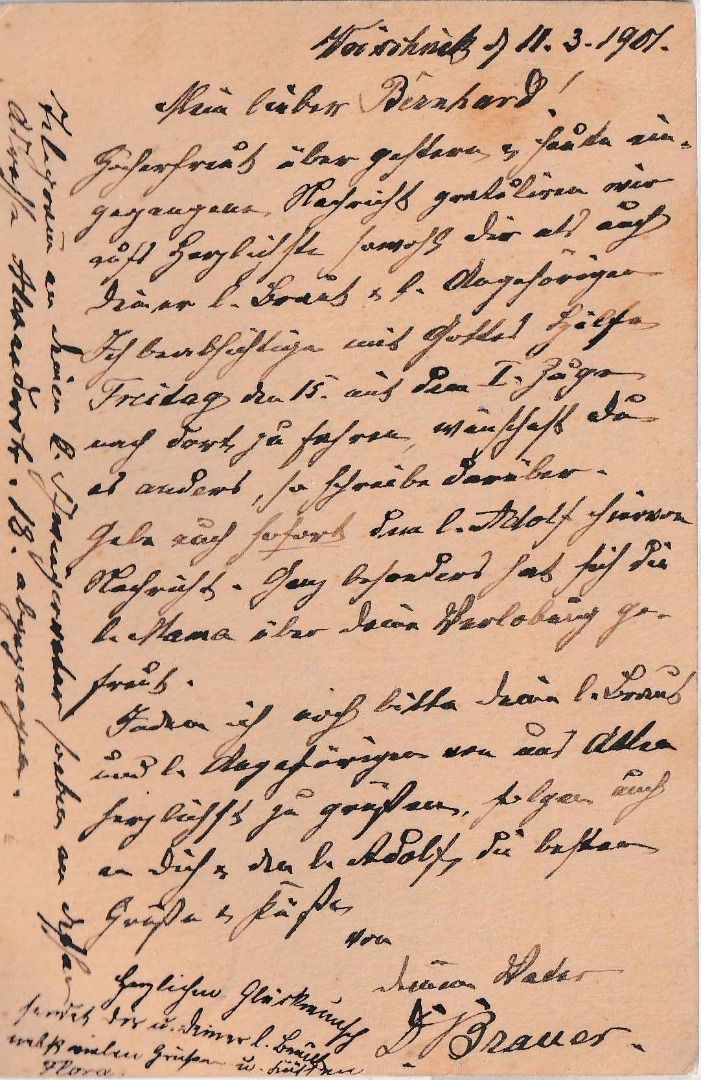 Woischnik d 11.3.1901.
Mein lieber Bernhard!
Hocherfreut über gestern & heute ein-
gegangene Nachricht gratuliren wir
aufs Herzlichste sowohl dir als auch
deiner l. Braut & l. Angehörigen
Ich beabsichtige mit Gottes Hilfe
Freitag den 15. mit dem I. Zuge
nach dort zu fahren, wünschest du
es anders, so schreibe darüber.
Gebe auch sofort dem l. Adolf hiervon
Nachricht. Ganz besonders hat sich die
l. Mama über deine Verlobung ge-
freut.
Indem ich noch bitte deine l. Braut
und l. Angehörigen von uns Allen
herzlichst zu grüßen, folgen auch
an Dich & den l. Adolf, die besten
Grüße & Küße
von
deinem Vater
D. Brauer.
Herzlichen Glückwunsch
sendet dir u. deiner l. Braut
nebst vielen Grüßen u. Küssen
Flora.
Telegramm an deinen l. Schwiegervater soeben an
Adresse Alexanderstr. 18. abgegangen.